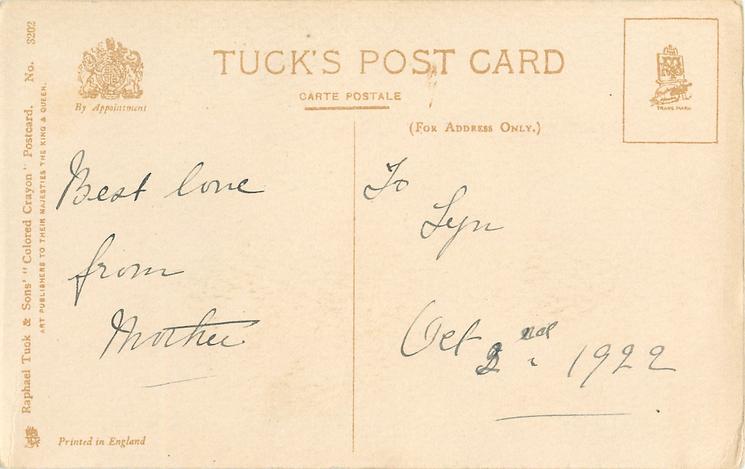 TUCK'S POST CARD
CARTE POSTALE
(FOR ADDRESS ONLY.)
By Appointment
TRADE MARK
Raphael Tuck & Sons' "Colored Crayon" Postcard. No. 3202
ART PUBLISHERS TO THEIR MAJESTIES THE KING & QUEEN.
Best love
from
Mother
To
Lyn
Oct 2nd 1922
Printed in England